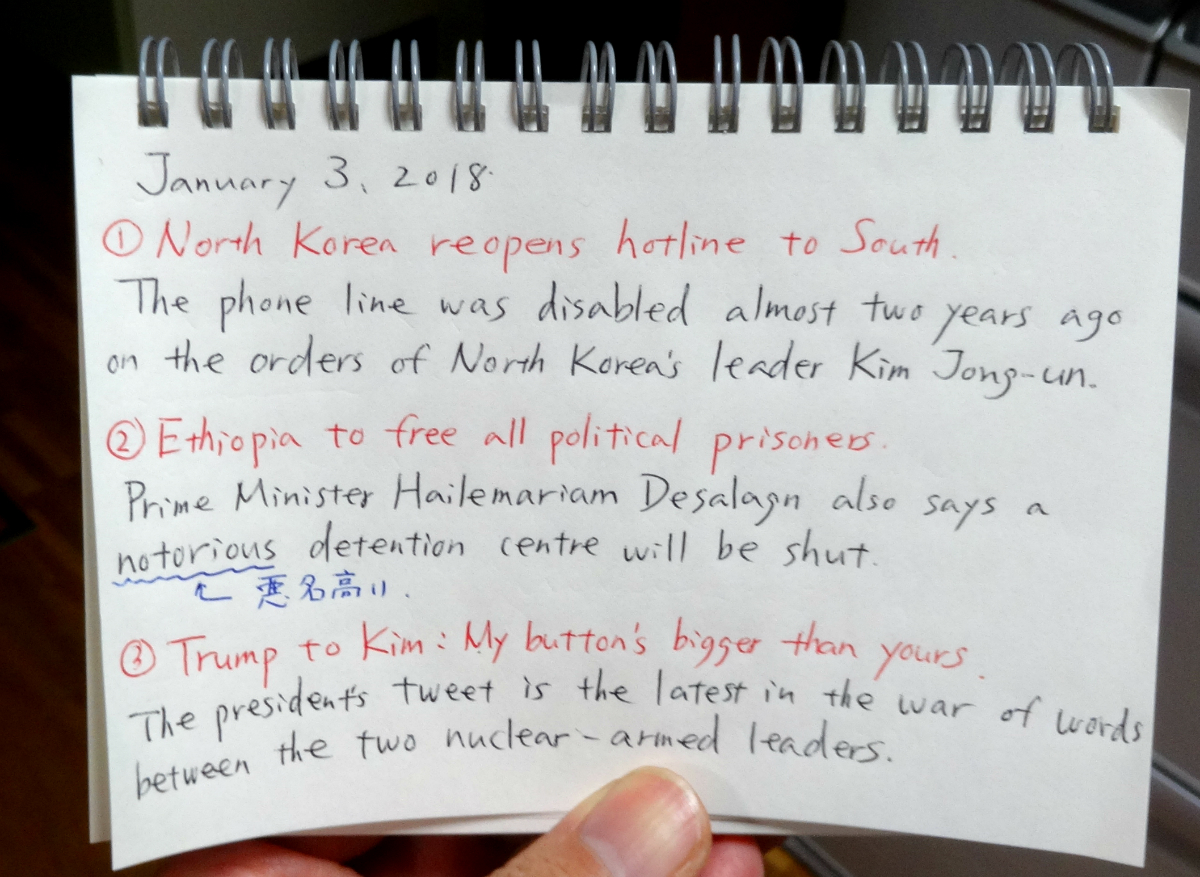 January 3, 2018.
① North Korea reopens hotline to South.
The phone line was disabled almost two years ago
on the orders of North Korea's leader Kim Jong-un.
② Ethiopia to free all political prisoners.
Prime Minister Hailemariam Desalagn also says a
notorious detention centre will be shut.
悪名高い.
③ Trump to Kim: My button's bigger than yours.
The president's tweet is the latest in the war of words
between the two nuclear-armed leaders.